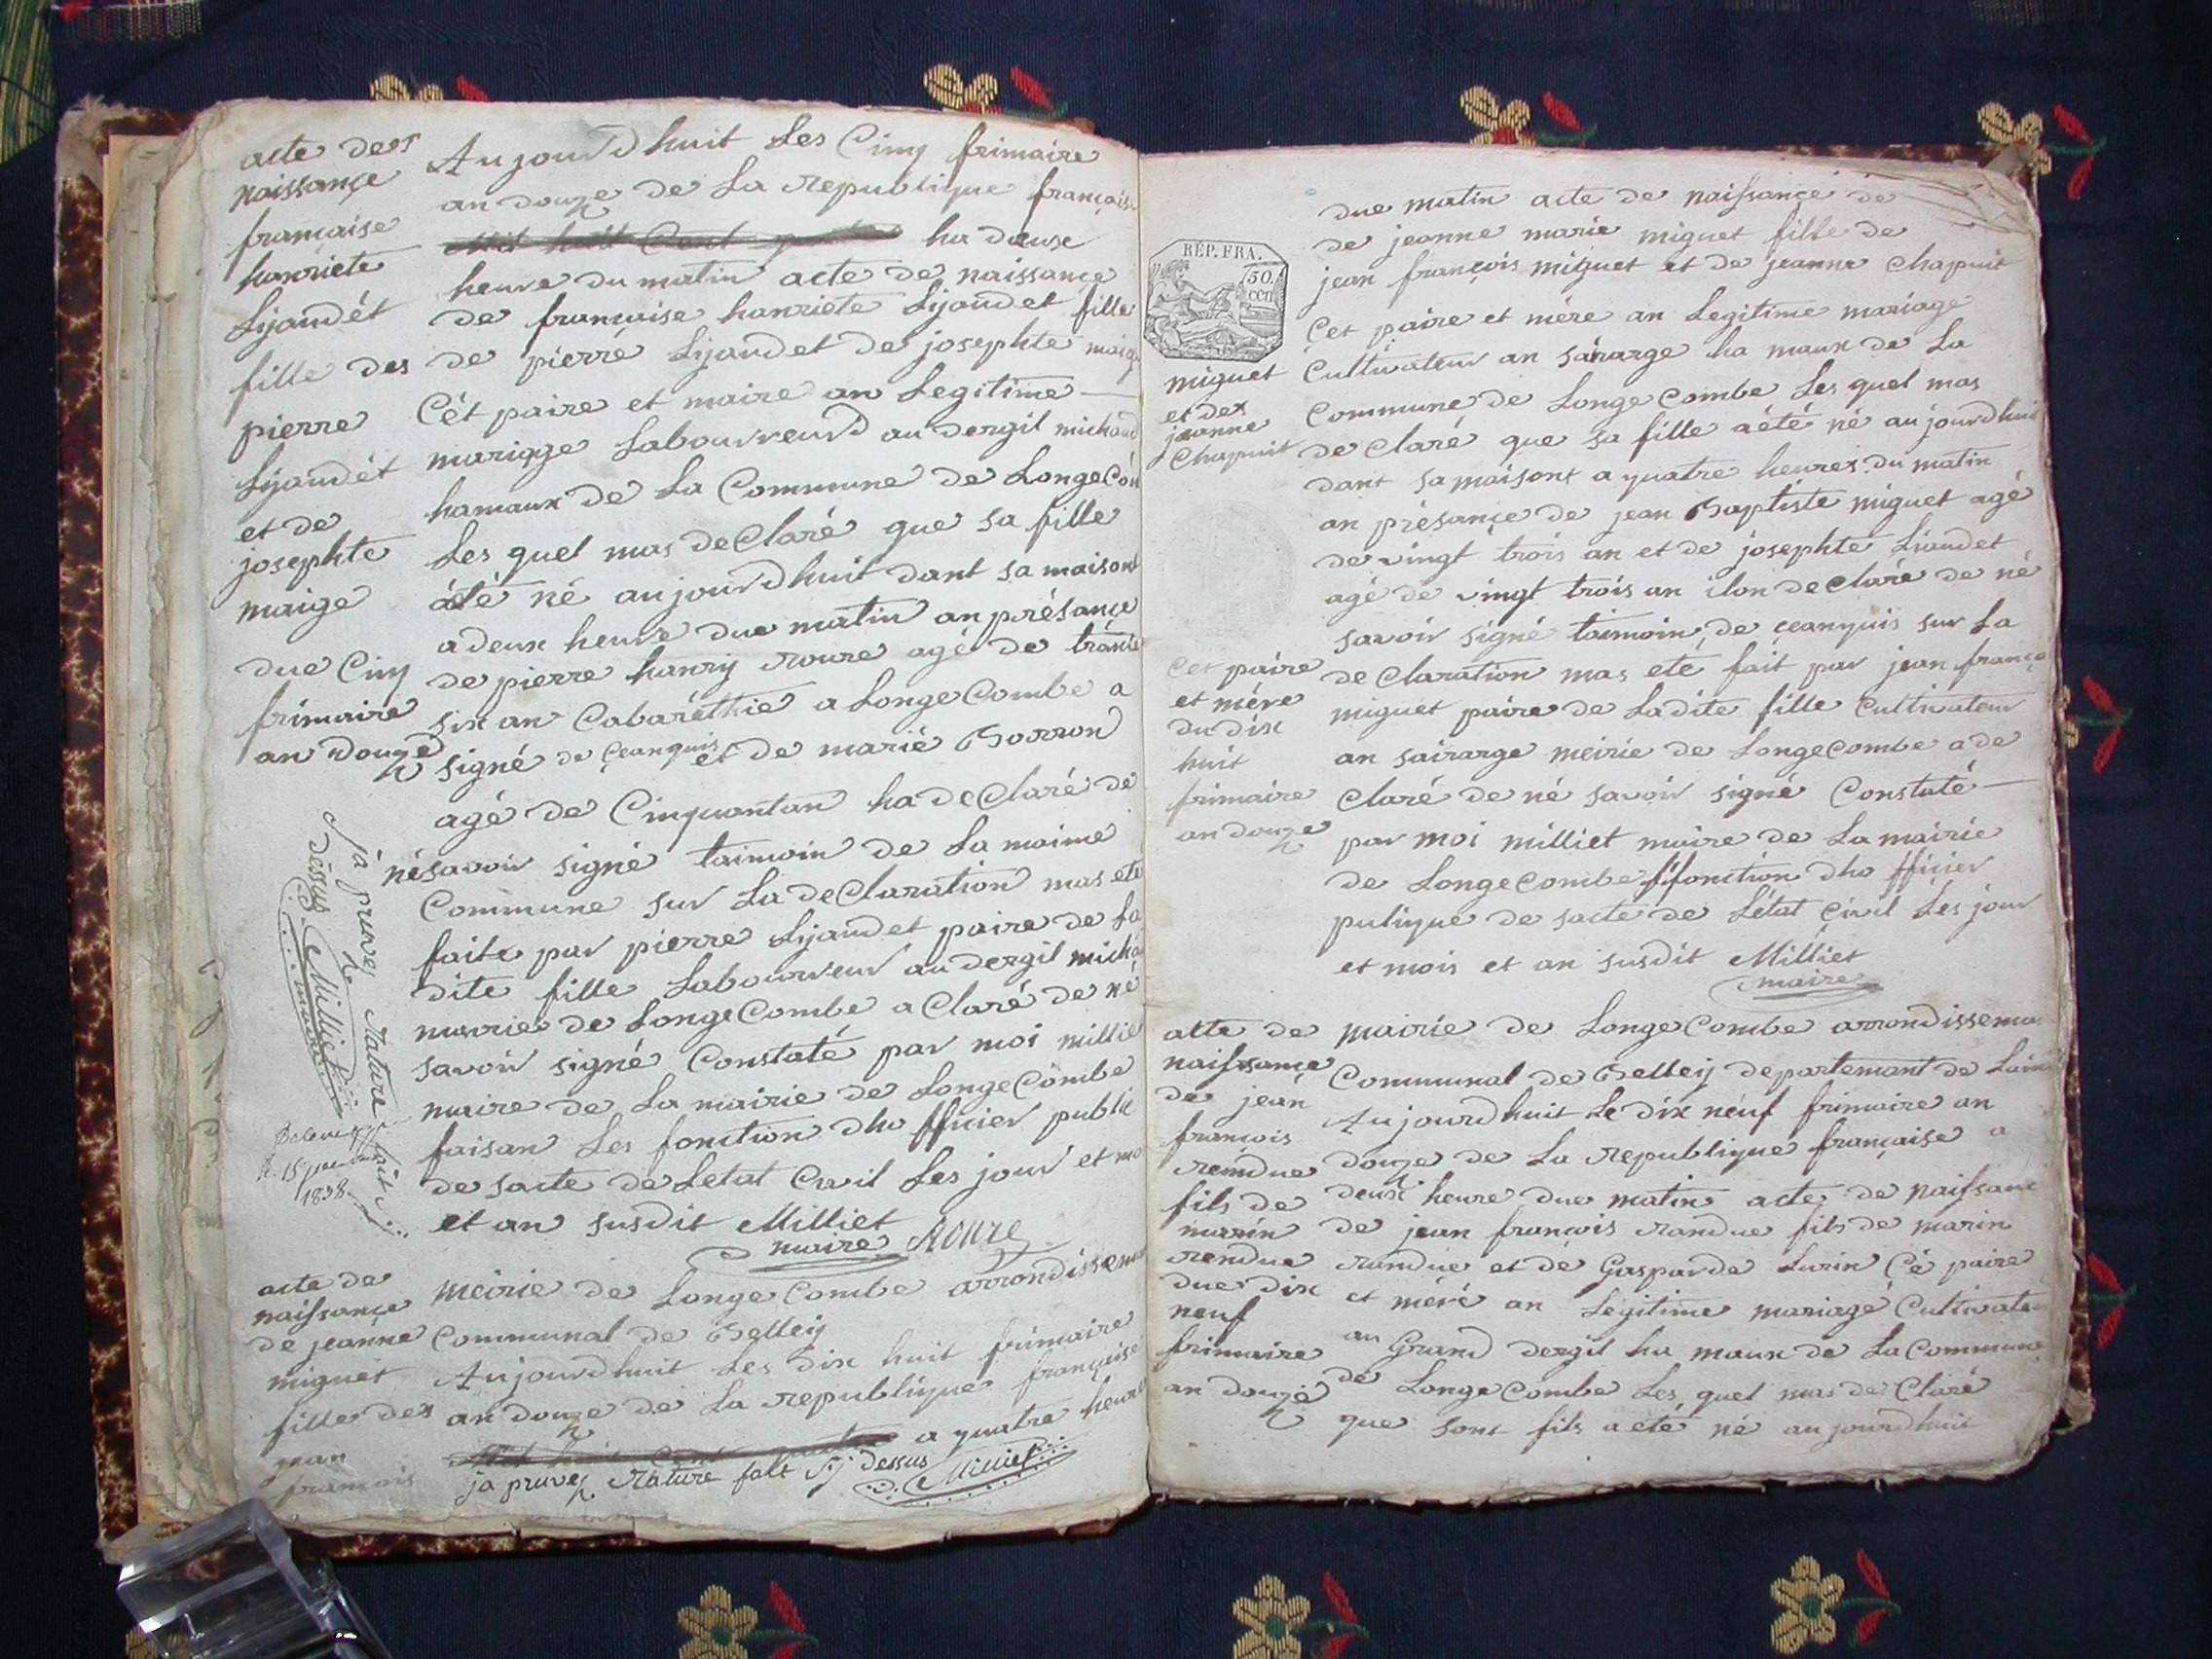 acte des
naissançe
française
hanriete
Lijaudét
fille des
pierre
Lijaudét
et de
josephte
maige
due Cinq
frimaire
an douze
Aujourdhuit Les Cinq frimaire
an douze de La republique français
ha deuse
heure du matin acte de naissançe
de française hanriete Lijaudet fille
de pierre Lijaudet de josephte maige
Cét paire et maire an Legitime
mariage Labourreurd au dergil michaud
hamaux de La Commune de LongeCom
Les quel mas deClaré que sa fille
áeté né aujourdhuit dant sa maisont
a deux heure due matin an présançe
de pierre hanrij roure agé de trante
six an Cabaréthie a LongeCombe a
signé de çeanquis et de marié Borron
agé de Cinquantan ha deClaré de
nésavoir signé taimoin de La maime
Commune sur La deClaration mas ete
faite par pierre Lijaudet paire de La
dite fille Labourreur au dergil micha
mairie de LongeCombe a Claré de né
savoir signé Constaté par moi millie
maire de La mairie de LongeCombe
faisan Les fonction dho fficier public
de sacte de Letat Civil Les jour et mo
et an susdit Milliet
maire Roure
ja pruve rature fait
dessus Milliet
maire
1838
acte de
naissançe
de jeanne
miguet
fille des
jean
françois
meirie de Longe Combe arrondissem
Communal de Belleij
Aujourdhuit Les dix huit frimaire
an douze de La republique française
a quatre heure
ja pruve rature fait si dessus
Milliet
RÉP. FRA.
50.
cen.
miguet
et des
jeanne
Chapuit
Cet paire
et mére
du dix
huit
frimaire
an douze
due matin acte de naissançe de
de jeanne marie miguet fille de
jean françois miguet et de jeanne Chapuit
Cet paire et mére an Legitime mariage
Cultivateur an sárarge ha maux de La
Commune de LongeCombe Les quel mas
de Claré que sa fille aété né aujourdhuit
dant sa maisont a quatre heures du matin
an présançe de jean Baptiste miguet agé
de vingt trois an et de josephte Liaudet
agé de vingt trois an ilon deClaré de né
savoir signé taimoin de çeanquis sur La
de Claration mas eté fait par jean franço
miguet paire de Ladite fille Cultivateur
an sairarge meirie de LongeCombe a de
Claré de né savoir signé Constaté
par moi milliet maire de La mairie
de LongeCombe fonction dho fficier
pulique de sacte de Létat Civil Lés jour
et mois et an susdit Milliet
maire
acte de
naissançe
de jean
françois
rendue
fils de
marin
rendue
due dix
neuf
frimaire
an douze
mairie de LongeCombe arrondissema
Communal de Belleij departemant de Lain
Aujourdhuit Le dix neuf frimaire an
douze de La republique française a
deux heure due matin acte de naissance
de jean françois randue fils de marin
randue et de Gasparde Lurin Cé paire
et mére an Legitime mariage Cultivateu
au Grand dergil ha maux de La Commune
de LongeCombe Les quel mas de Claré
que sont fils a eté né aujourdhuit